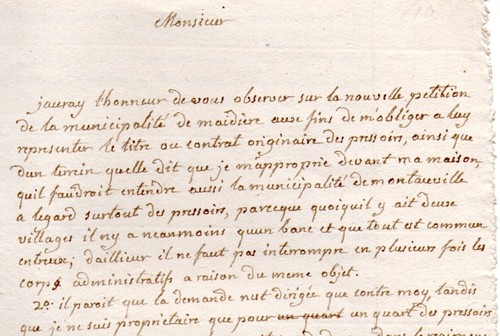 Monsieur
jauray lhonneur de vous observer sur la nouvelle petition
de la municipalité de maidiere aux fins de m'obliger a luy
representer le titre ou contrat originaire des pressoirs, ainsi que
dun terrein quelle dit que je m'approprie devant ma maison
quil faudroit entendre aussi la municipalité de montauville
a legard surtout des pressoirs, parceque quoiquil y ait deux
villages il ny a neanmoins quun banc et que tout est commun
entreux; dailleur il ne faut pas interrompre en plusieurs fois les
corps administratifs a raison du meme objet.
2o: il paroit que la demande nut dirigée que contre moy, tandis
que je ne suis proprietaire que pour un quart un quart des pressoirs